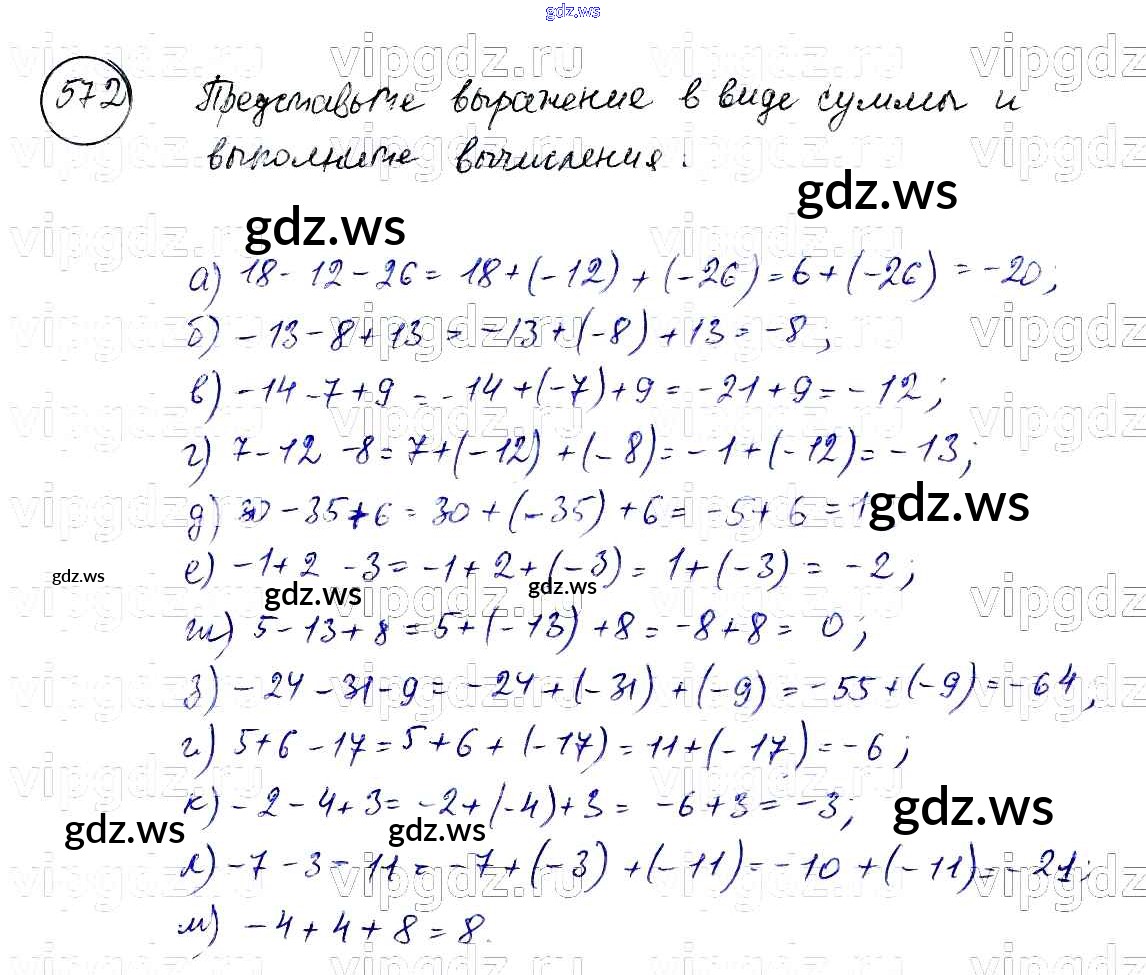 gdz.ws
572 Представьте выражение в виде суммы и
выполните вычисления:
gdz.ws
gdz.ws
а) 18-12-26=18+(-12)+(-26)=6+(-26)=-20;
б) -13-8+13=-13+(-8)+13=-8;
в) -14-7+9=-14+(-7)+9=-21+9=-12;
г) 7-12-8=7+(-12)+(-8)=-1+(-12)=-13;
д) 30-35+6=30+(-35)+6=-5+6=1
gdz.ws
е) -1+2-3=-1+2+(-3)=1+(-3)=-2;
gdz.ws
gdz.ws
gdz.ws
ж) 5-13+8=5+(-13)+8=-8+8=0;
з) -24-31-9=-24+(-31)+(-9)=-55+(-9)=-64,
и) 5+6-17=5+6+(-17)=11+(-17)=-6;
к) -2-4+3=-2+(-4)+3=-6+3=-3;
gdz.ws
gdz.ws
gdz.ws
л) -7-3-11=-7+(-3)+(-11)=-10+(-11)=-21;
м) -4+4+8=8.
vipgdz.ru